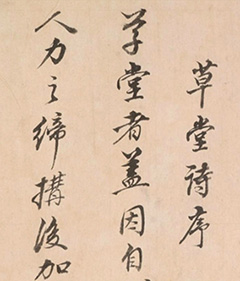 草堂詩序
草堂者蓋因自
人力之締搆後加